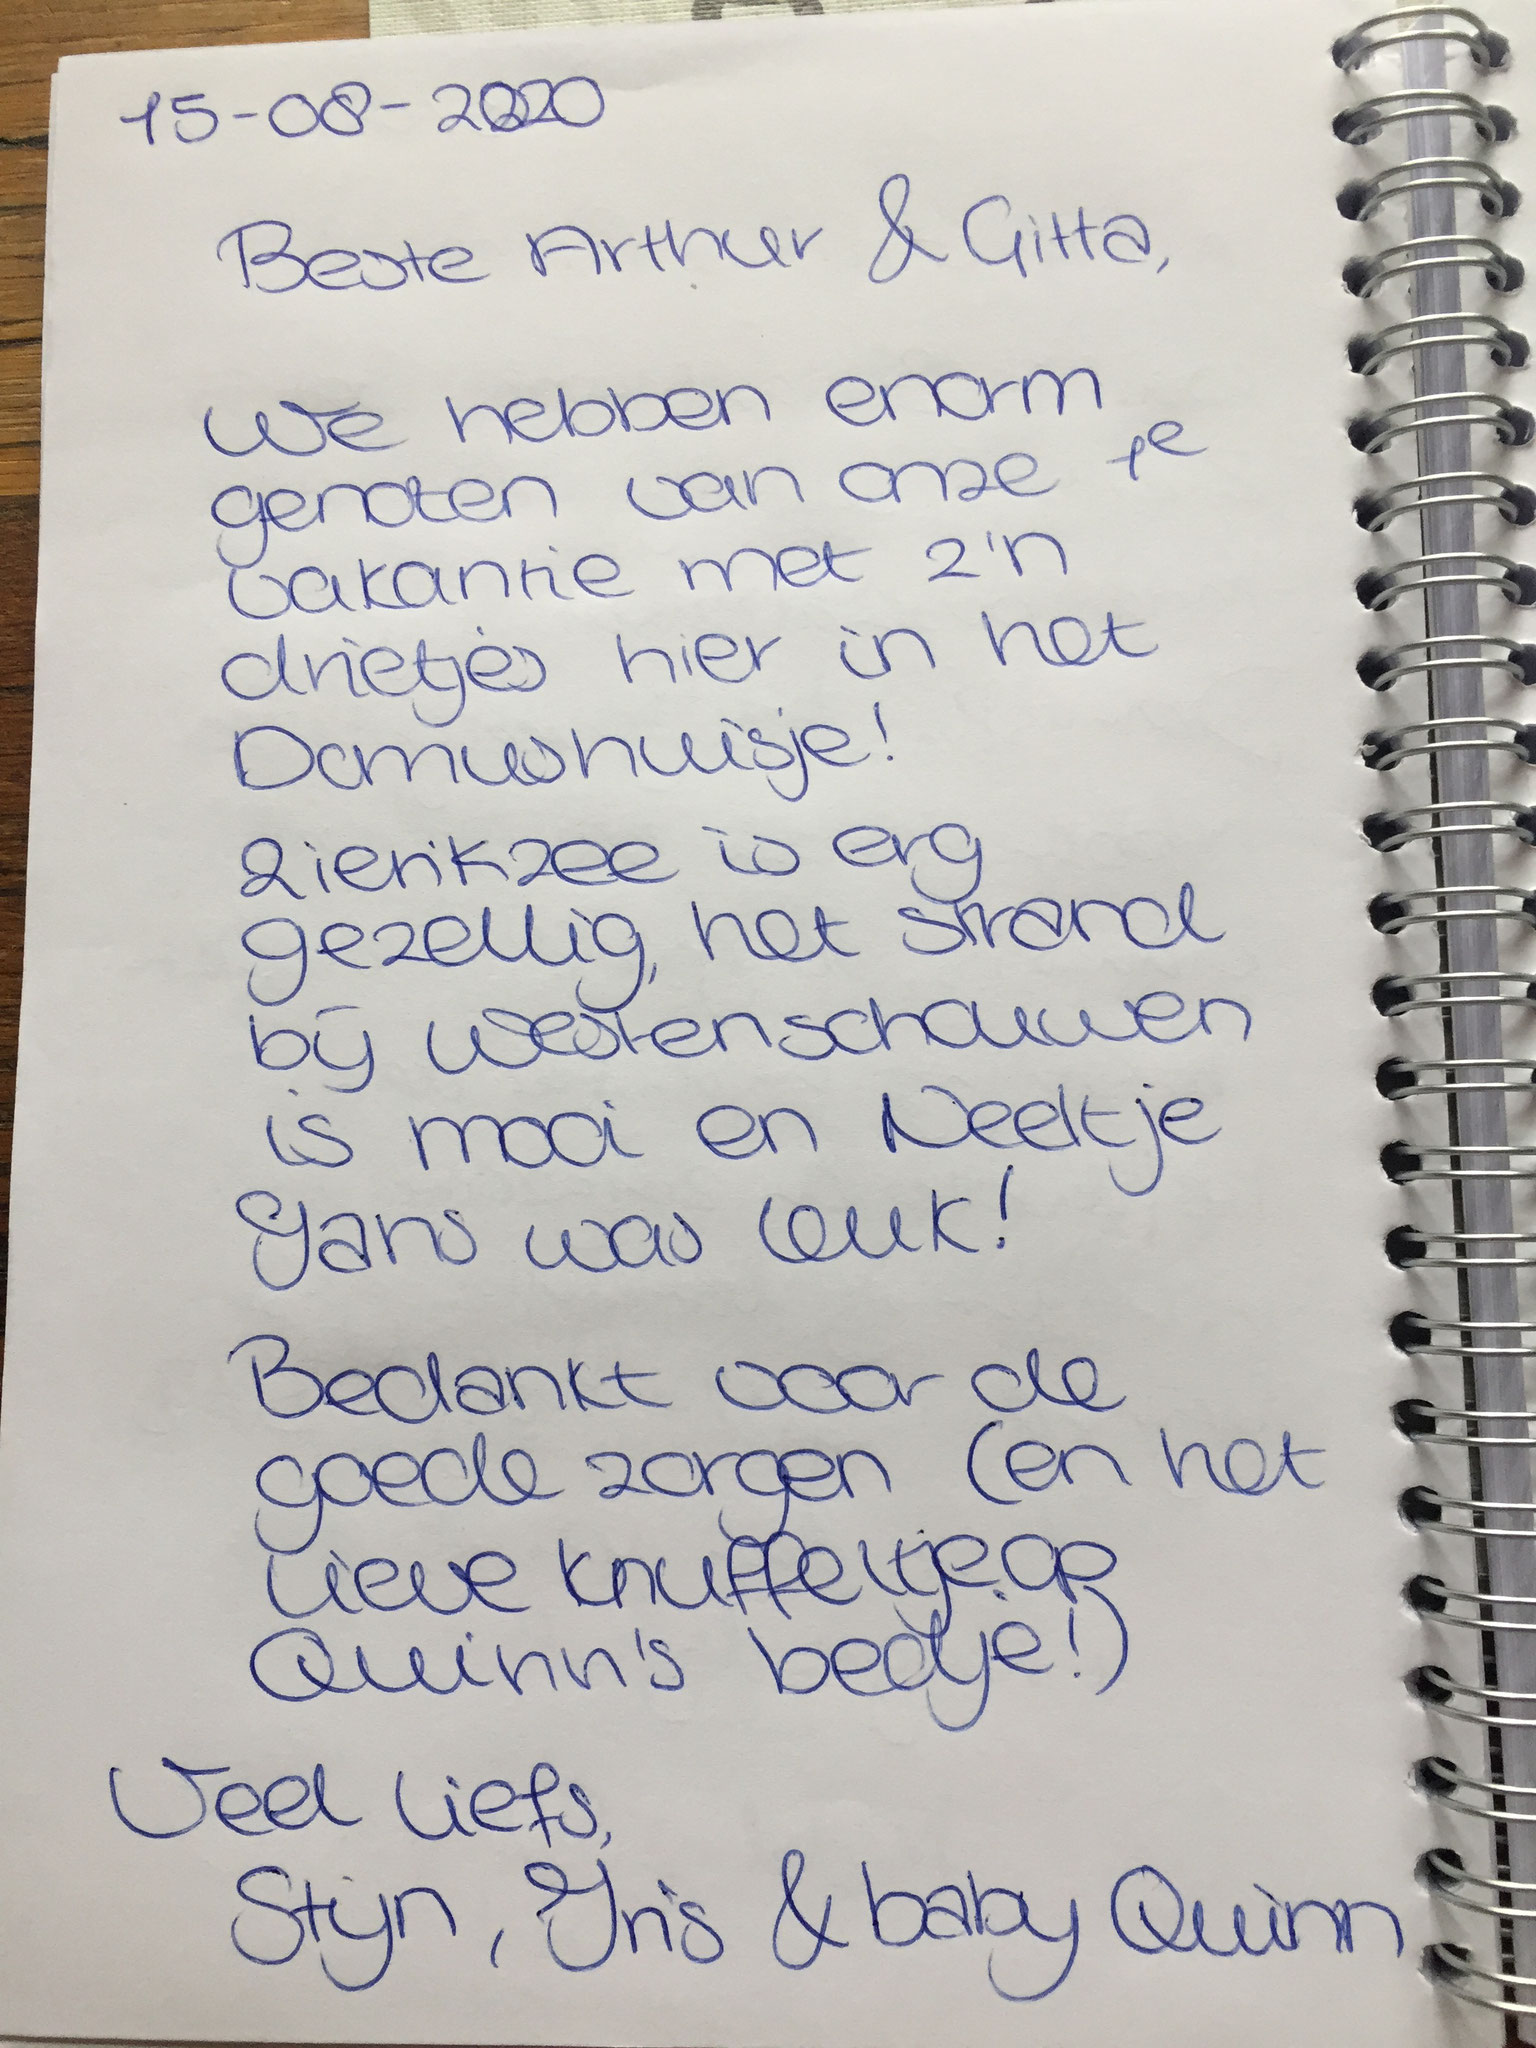 15-08-2020
Beste Arthur & Gitta,
We hebben enorm
genoten van onze 1e
vakantie met z'n
drietjes hier in het
Domushuisje!
Zierikzee is erg
gezellig, het strand
bij Westenschouwen
is mooi en Neeltje
Jans was leuk!
Bedankt voor de
goede zorgen (en het
lieve knuffeltje op
Quinn's bedje!)
Veel liefs,
Stijn, Iris & baby Quinn